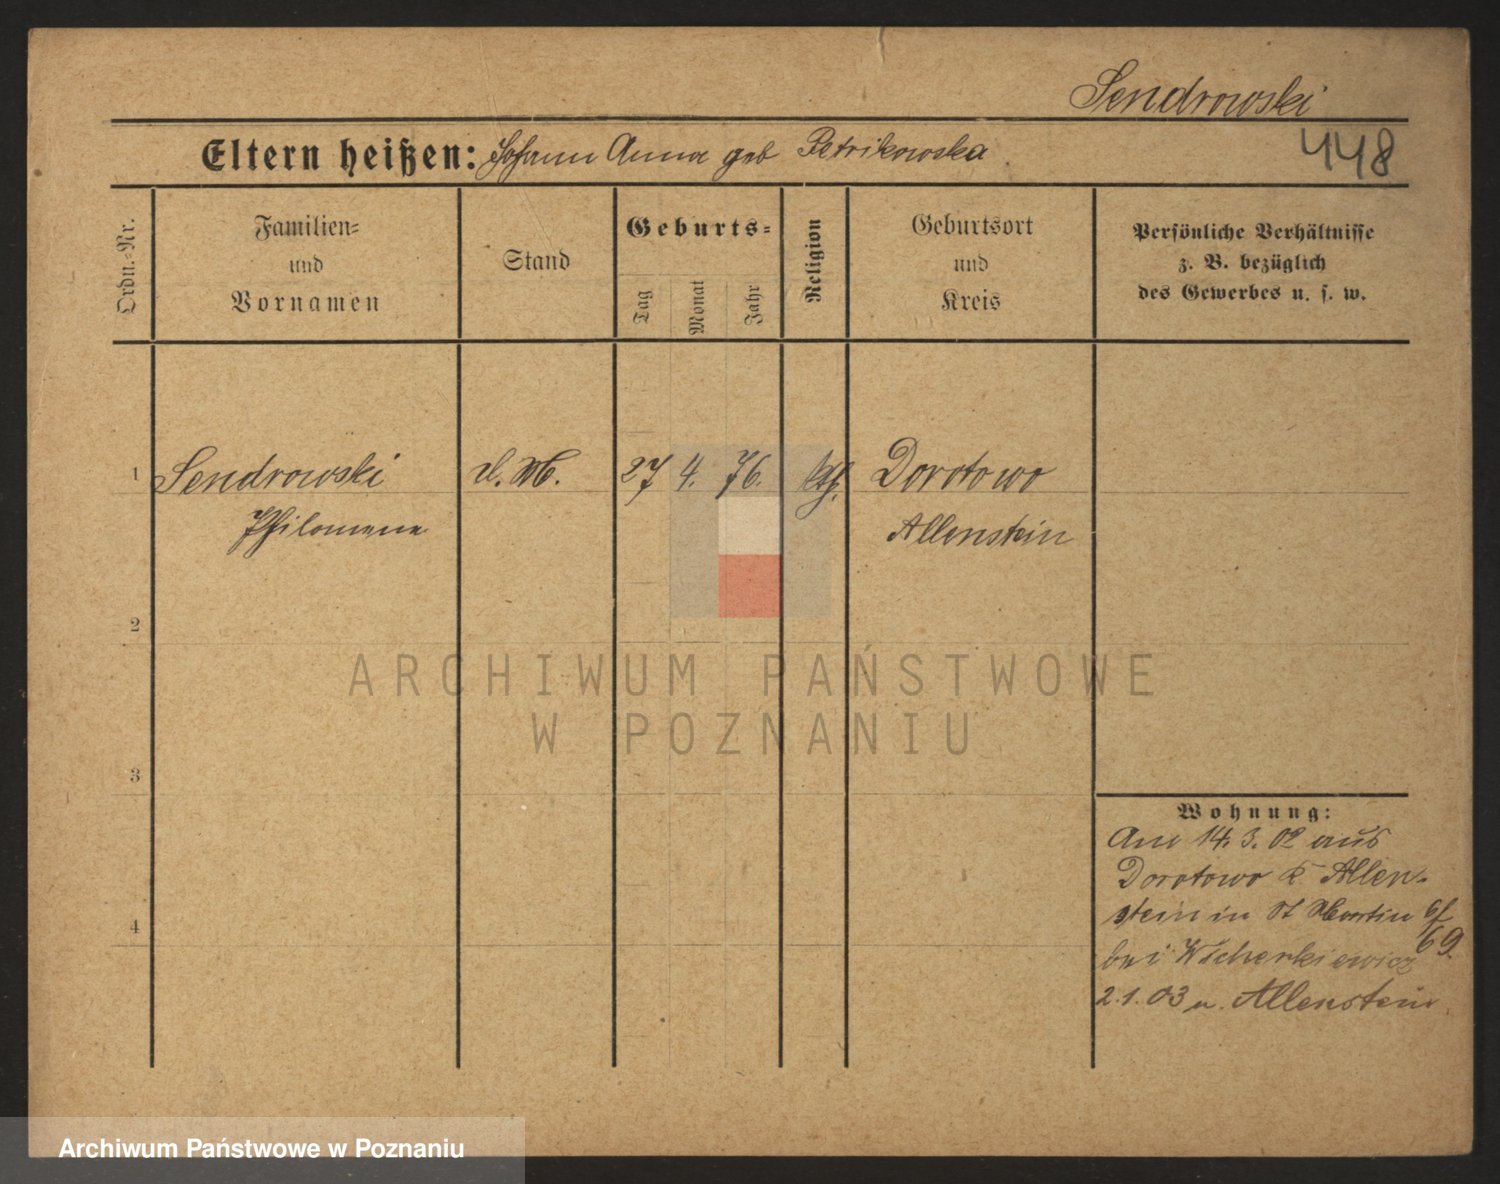 Sendrowski
Eltern heißen: Johann Anna geb Petrikowska
448
Ordn.-Nr.
Familien-
und
Vornamen
Stand
Geburts-
Tag
Monat
Jahr
Religion
Geburtsort
und
Kreis
Persönliche Verhältnisse
z. B. bezüglich
des Gewerbes u. s. w.
1 Sendrowski d. M. 27 4. 76. kth. Dorotowo
Philomena Allenstein
2
3
4
ARCHIWUM PAŃSTWOWE
W POZNANIU
Wohnung:
Am 14. 3. 02 aus
Dorotowo K. Allen-
stein in St Martin
69.
bei Wicherkiewicz
2. 1. 03 n. Allenstein
Archiwum Państwowe w Poznaniu